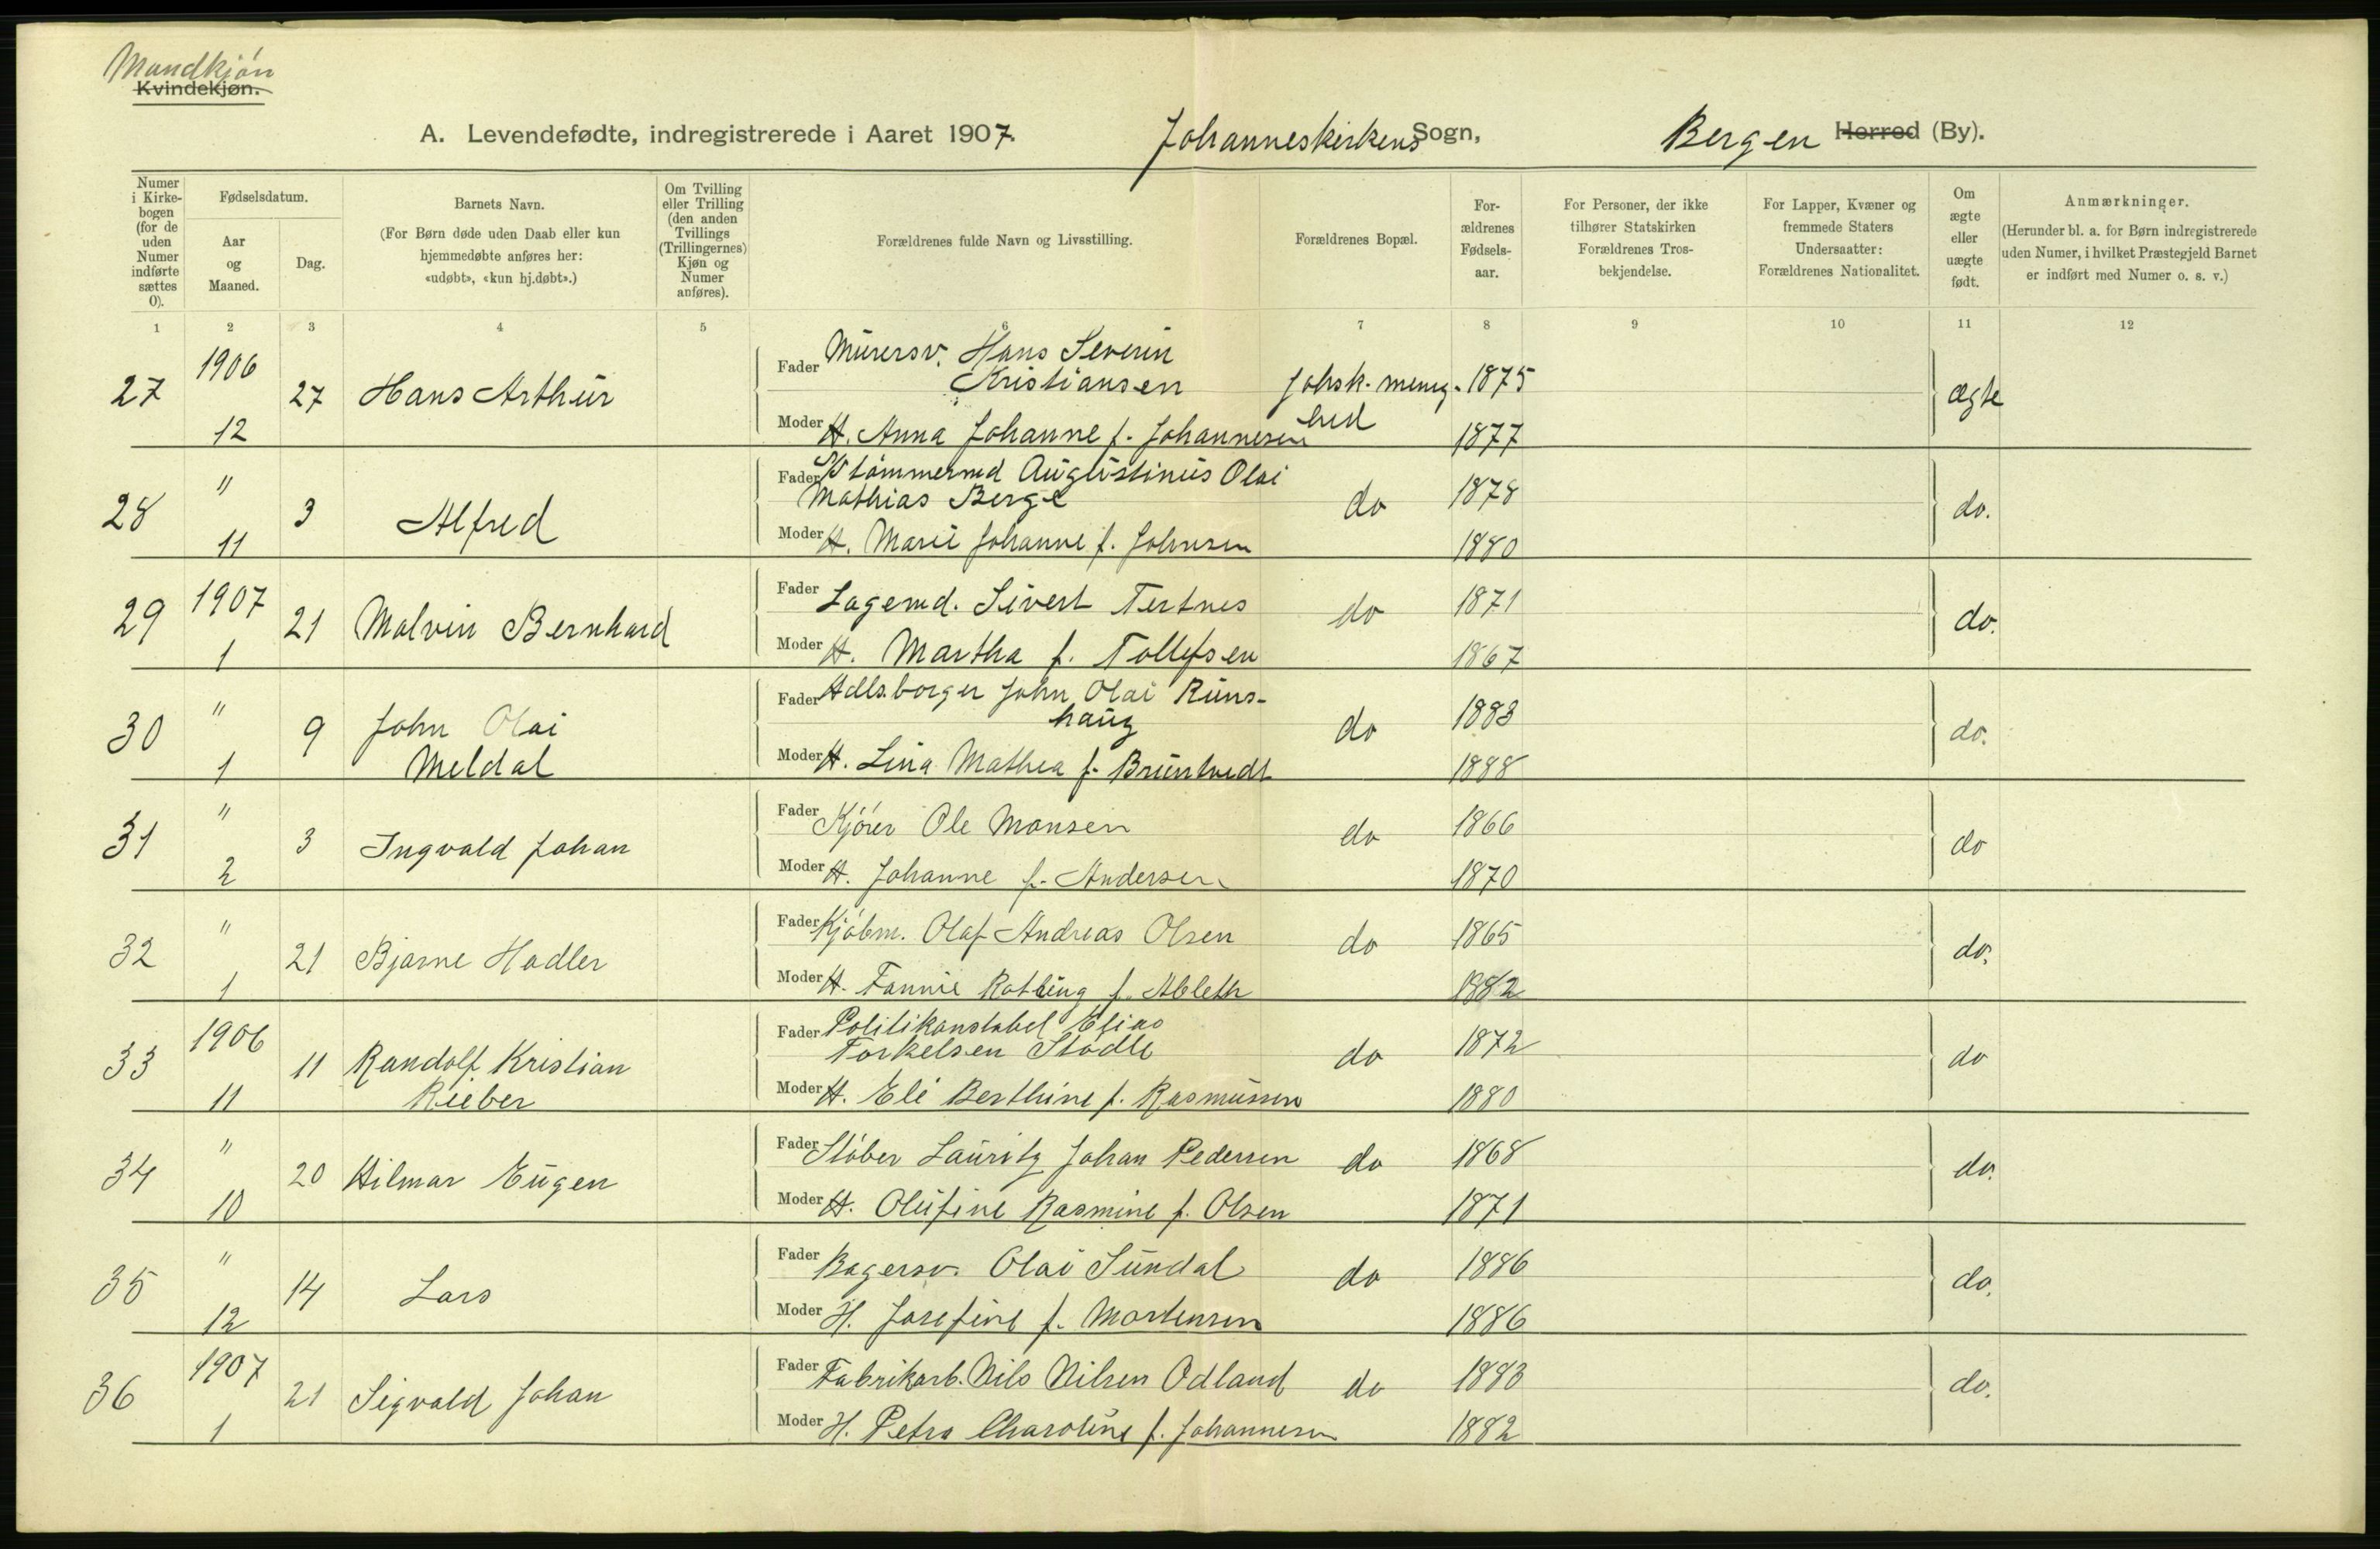 Mandkjøn
Kvindekjøn.
A. Levendefødte, indregistrerede i Aaret 1907. Johanneskirkens Sogn, Bergen Herred (By).
Numer i Kirke-bogen (for de uden Numer indførte sættes 0).
Fødselsdatum.
Aar og Maaned.
Dag.
Barnets Navn.
(For Børn døde uden Daab eller kun hjemmedøbte anføres her: «udøbt», «kun hj.døbt».)
Om Tvilling eller Trilling (den anden Tvillings (Trillingernes) Kjøn og Numer anføres).
Forældrenes fulde Navn og Livsstilling.
Forældrenes Bopæl.
For-ældrenes Fødsels-aar.
For Personer, der ikke tilhører Statskirken Forældrenes Tros-bekjendelse.
For Lapper, Kvæner og fremmede Staters Undersaatter: Forældrenes Nationalitet.
Om ægte eller uægte født.
Anmærkninger.
(Herunder bl. a. for Børn indregistrerede uden Numer, i hvilket Præstegjeld Barnet er indført med Numer o. s. v.)
1 2 3 4 5 6 7 8 9 10 11 12
27 1906 12 27 Hans Arthur
Fader Murersv. Hans Severin
Kristiansen Johsk. menig- 1875 ægte
Moder H. Anna Johanne f. Johannesen hed 1877
28 " 11 3 Alfred
Fader Tømmermd Augustinus Olai
Mathias Berge do 1878 do.
Moder H. Marie Johanne f. Johnsen 1880
29 1907 1 21 Malvin Bernhard
Fader Lagermd. Sivert Tertnes do 1871 do.
Moder H. Martha f. Tollefsen 1867
30 " 1 9 John Olai
Meldal
Fader Hdlsborger John Olai Runs-
haug do 1883 do.
Moder H. Lina Mathea f. Bruntvedt 1888
31 " 2 3 Ingvald Johan
Fader Kjører Ole Monsen do 1866 do
Moder H. Johanne f. Andersen 1870
32 " 1 21 Bjarne Hadler
Fader Kjøbm. Olaf Andreas Olsen do 1865 do.
Moder H. Fannie f. 1882
33 1906 11 11 Randolf Kristian
Rieber
Fader Politikonstabel Elias
Torkelsen Stødle do 1872 do
Moder H. Eli Berthine f. Rasmussen 1880
34 " 10 20 Hilmar Eugen
Fader Støber Lauritz Johan Pedersen do 1868 do.
Moder H. Olufine Rasmine f. Olsen 1871
35 " 12 14 Lars
Fader Bagersv. Olai Sundal do 1886 do.
Moder H. Josefine f. Mortensen 1886
36 1907 1 21 Sigvald Johan
Fader Fabrikarb. Nils Nilsen Odland do 1883 do.
Moder H. Petra Charoline f. Johannesen 1882